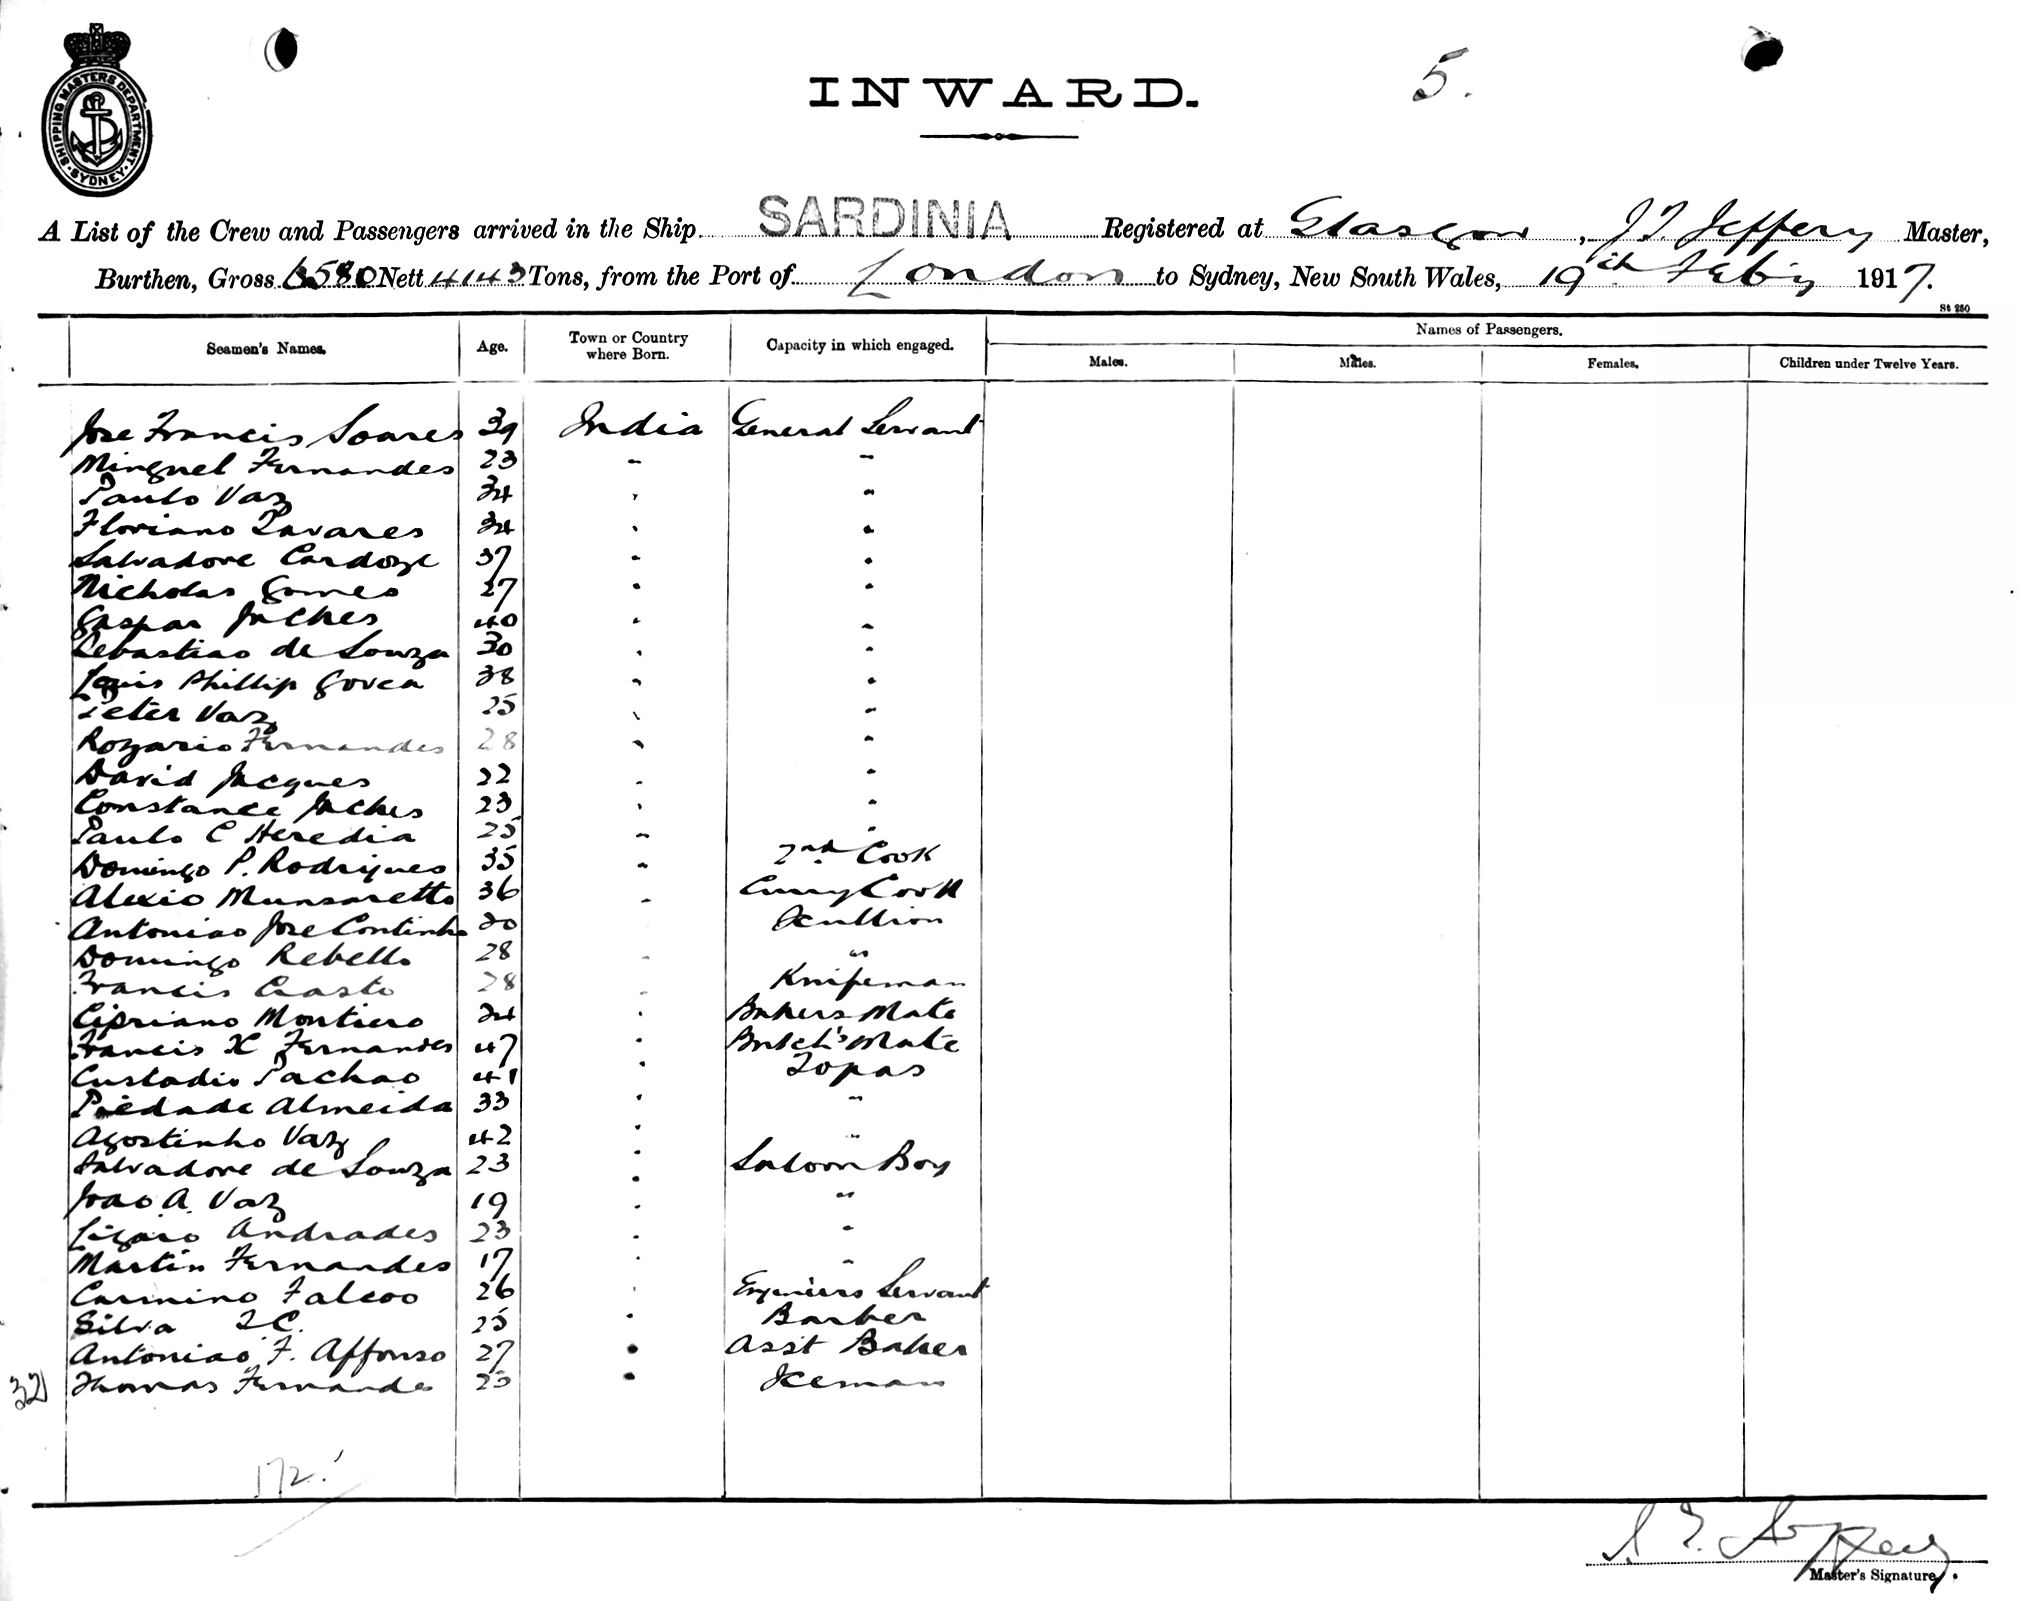 SHIPPING MASTERS DEPARTMENT
SYDNEY
INWARD.
5.
A List of the Crew and Passengers arrived in the Ship SARDINIA Registered at Glasgow, J T. Jeffery Master,
Burthen, Gross 6580 Nett 4143 Tons, from the Port of London to Sydney, New South Wales, 19th Feby 1917.
St 250
Seamen's Names. Age. Town or Country where Born. Capacity in which engaged. Names of Passengers.
Males. Males. Females. Children under Twelve Years.
Jose Francis Soares 39 India General Servant
Minguel Fernandes 23 " "
Paulo Vaz 34 " "
Floriano Tavares 34 " "
Salvadore Cardoze 37 " "
Nicholas Gomes 27 " "
Gaspar Jaches 40 " "
Sebastiao de Souza 30 " "
Louis Phillip Govea 38 " "
Peter Vaz 25 " "
Rozario Fernandes 28 " "
David Jacques 22 " "
Constance Jaches 23 " "
Paulo C Heredia 25 " "
Domingo P. Rodrigues 35 " 2nd Cook
Alexio Munsaretto 36 " Curry Cook
Antoniao Jose Continho 30 " Scullion
Domingo Rebello 28 " "
Francis Crasto 28 " Knifeman
Cipriano Montiero 24 " Bakers Mate
Francis X Fernandes 47 " Butch's Mate
Custodio Pachao 41 " Topas
Piedade Almeida 33 " "
Agostinho Vaz 42 " "
Salvadore de Souza 23 " Saloon Boy
Joao A. Vaz 19 " "
Andrades 23 " "
Martin Fernandes 17 " "
Carmino Falcao 26 " Engineers Servant
Silva 25 " Barber
Antoniao F. Affonso 27 " Asst Baker
32) Thomas Fernandes 25 " Iceman
172.
J. T. Jeffery
Master's Signature.